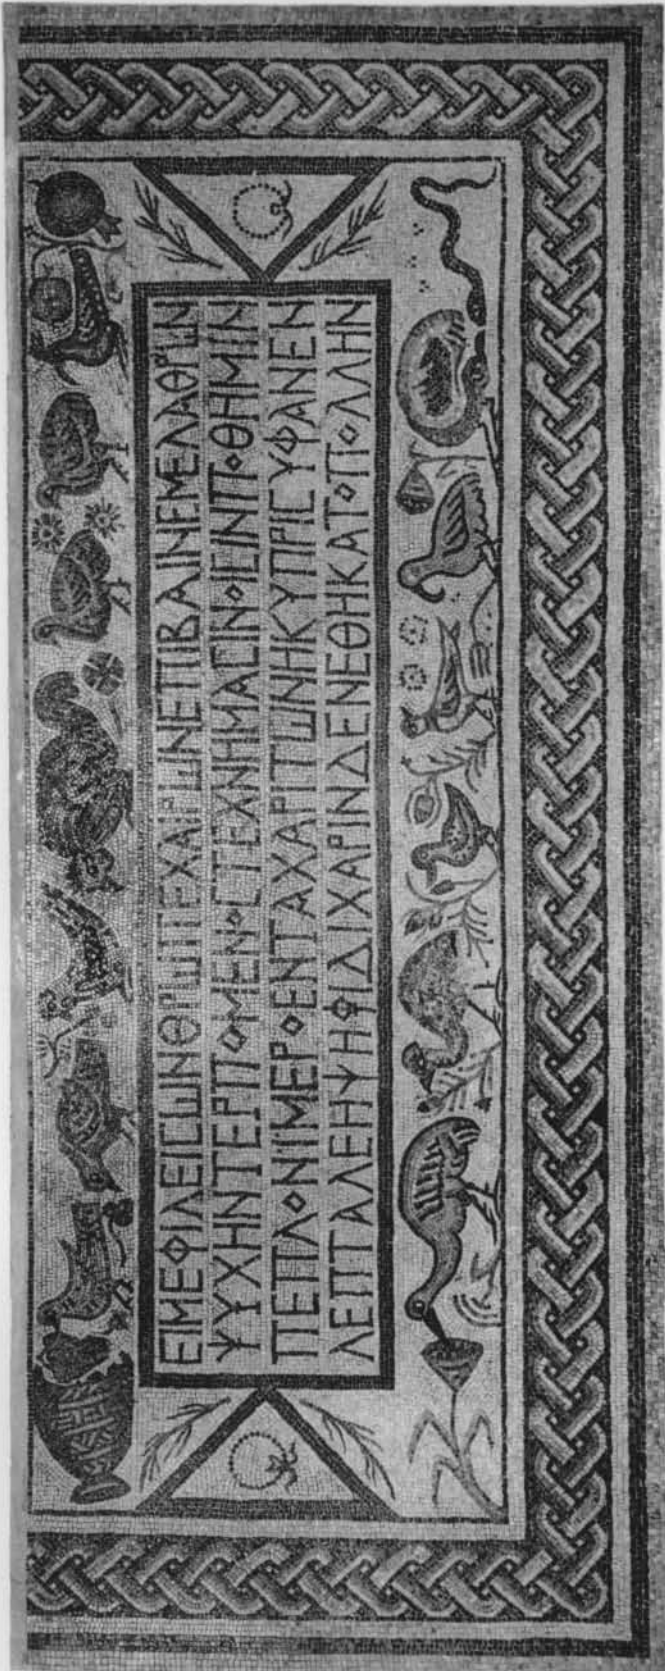 ΕΙΜΕΦΙΛΕΙϹΩΝΘΡΩΠΕΧΑΙΡΩΝΕΠΙΒΑΙΝΕΜΕΛΑΘΡΩΝ
ΨΥΧΗΝΤΕΡΠΟΜΕΝΟϹΤΕΧΝΗΜΑϹΙΝΟΙϹΙΝΠΟΘΗΜΙΝ
ΠΕΠΛΟΝΪΜΕΡΟΕΝΤΑΧΑΡΙΤΩΝΗΚΥΠΡΙϹΥΦΑΝΕΝ
ΛΕΠΤΑΛΕΗΨΗΦΙΔΙΧΑΡΙΝΔΕΝΕΘΗΚΑΤΟΠΟΛΛΗΝ